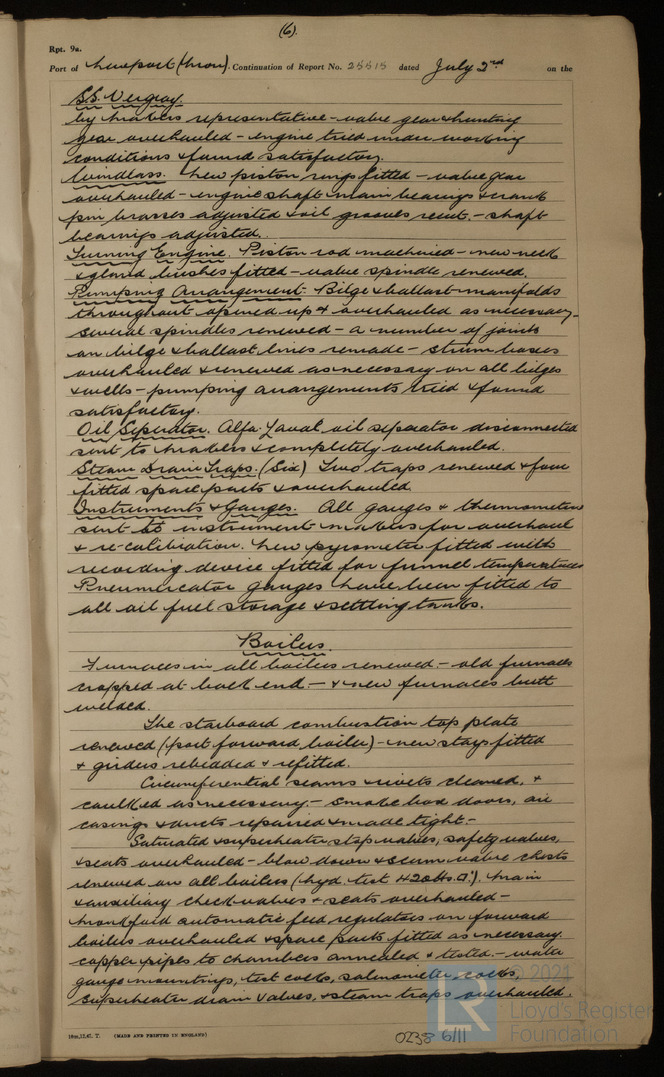 (6).
Rpt. 9a.
Port of Newport (Mon). Continuation of Report No. 25515 dated July 2nd on the
S.S. Vergray.
by makers representative - valve gear & hunting
gear overhauled - engine tried under working
conditions & found satisfactory.
Windlass. New piston rings fitted - valve gear
overhauled - engine shaft main bearings & crank
pin brasses adjusted & oil grooves recut. - shaft
bearings adjusted.
Turning Engine. Piston rod machined - new neck
& gland bushes fitted - valve spindle renewed.
Pumping Arrangement. Bilge & ballast manifolds
throughout opened up & overhauled as necessary -
several spindles renewed - a number of joints
on bilge & ballast lines remade - strum boxes
overhauled & renewed as necessary on all bilges
& wells - pumping arrangements tried & found
satisfactory.
Oil Seperator. Alfa-Laval oil seperator disconnected
sent to makers & completely overhauled.
Steam Drain Traps. (Six) Two traps renewed & four
fitted spare parts & overhauled.
Instruments & Gauges. All gauges & thermometers
sent to instrument makers for overhaul
& re-calibration. New pyrometer fitted with
recording device fitted for funnel temperatures
Pneumercator gauges have been fitted to
all oil fuel storage & settling tanks.
Boilers.
Furnaces in all boilers renewed. - old furnaces
cropped at back end. - & new furnaces butt
welded.
The starboard combustion top plate
renewed (port forward boiler) - new stays fitted
& girders rebedded & refitted.
Circumferential seams & rivets cleaned, &
caulked as necessary. - smoke box doors, air
casings & ducts repaired & made tight. -
Saturated & superheater stop valves, safety valves,
& seats overhauled - blow down & scum valve chests
renewed on all boilers (hyd. test 420 lbs. □"). Main
& auxiliary check valves & seats overhauled -
automatic feed regulators on forward
boilers overhauled & spare parts fitted as necessary.
copper pipes to chambers annealed & tested. - water
gauge mountings, test cocks, salinometer cocks,
superheater drain valves, & steam traps overhauled.
10m,12,47. T. (MADE AND PRINTED IN ENGLAND)
0238 6/11
© 2021
LR
Lloyd's Register
Foundation